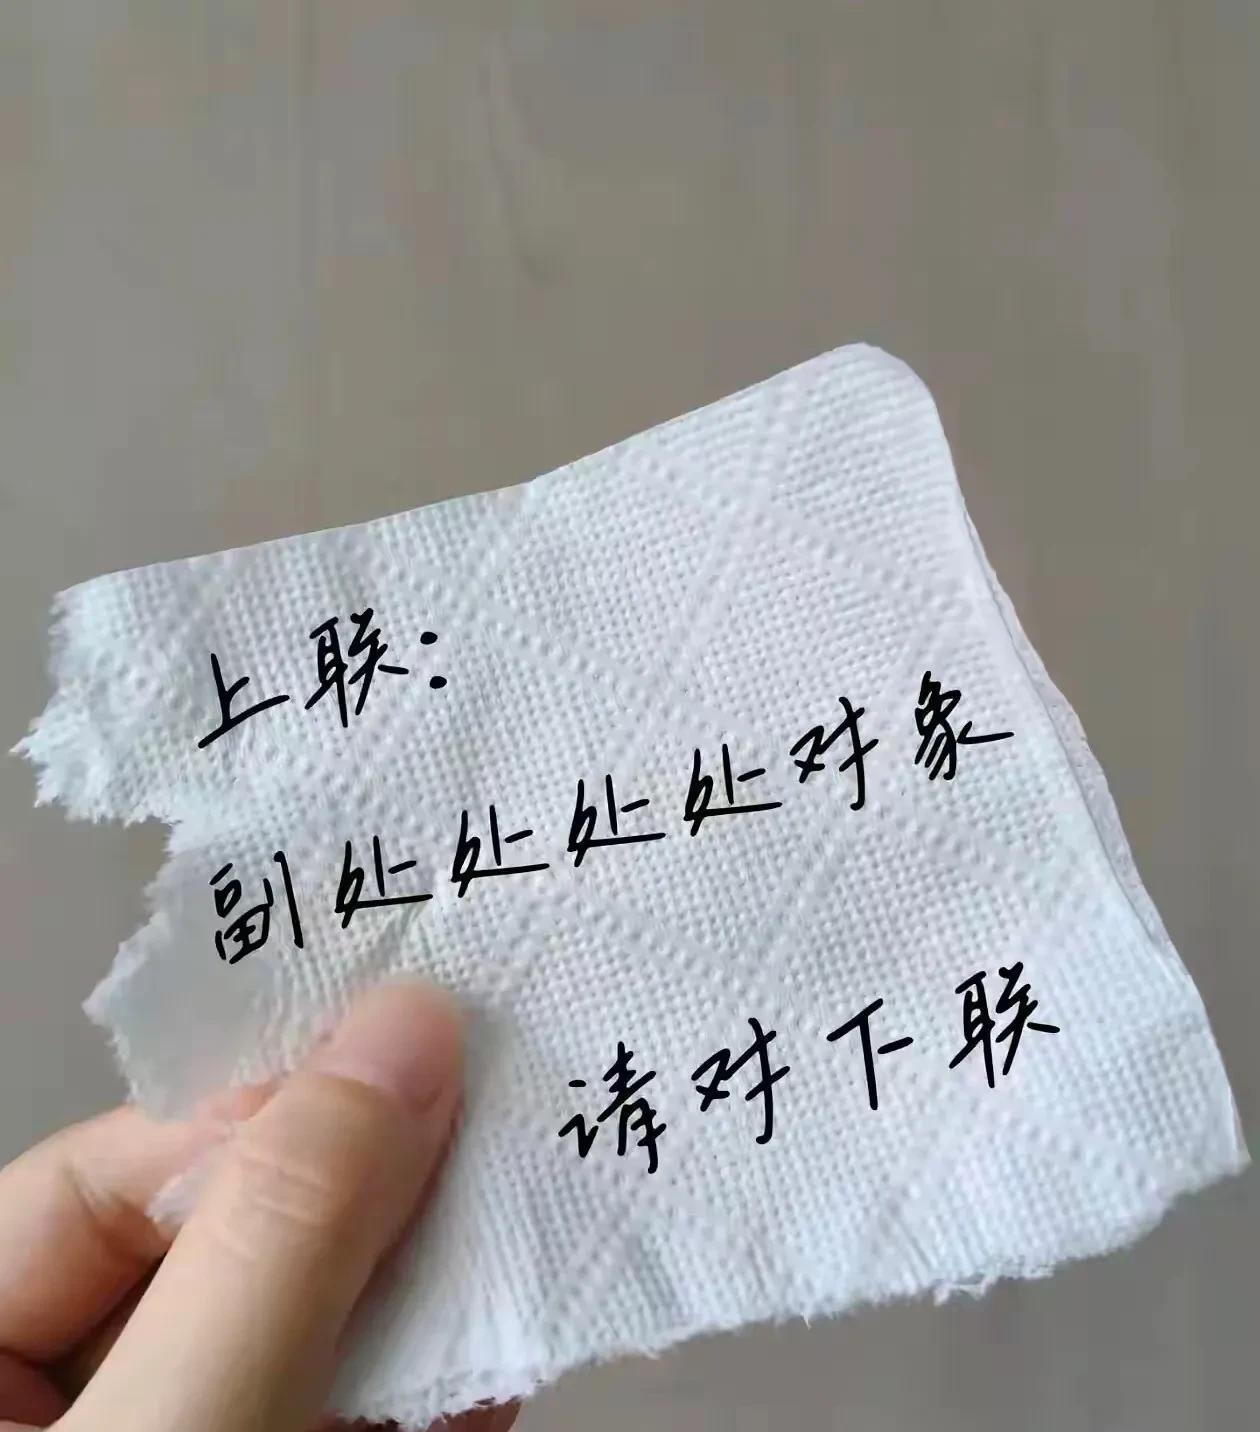 上联：
副处处处处对象
请对下联